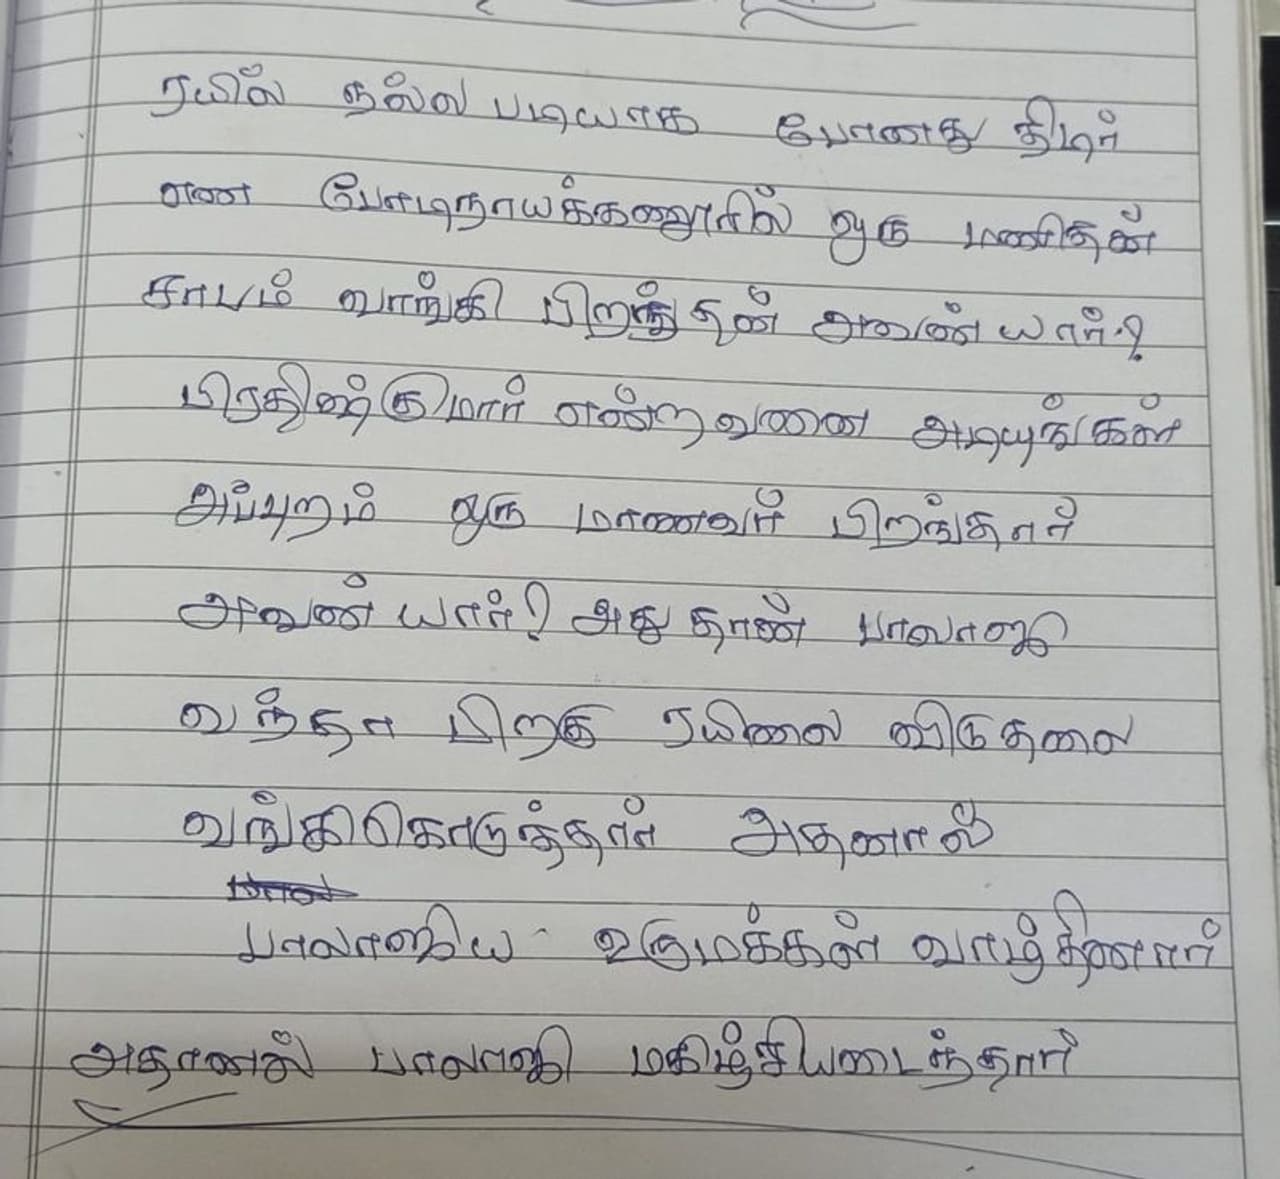 ரயில் நல்ல படியாக போனது திடிர்
என போடிநாயக்கனூரில் ஒரு மனிதன்
சாபம் வாங்கி பிறந்தன் அவன் யார்?
பிரதிஷ்குமார் என்றவனை அடியுங்கள்
அப்புறம் ஒரு மாணவர் பிறந்தார்
அவன் யார்? அது தான் பாலாஜி
வந்தா பிறகு ரயிலை விடுதலை
வங்கிகொடுத்தார் அதனால்
பாலாஜிய ஊருமக்கள் வாழ்தினார்
அதானல் பாலாஜி மகிழ்சியடைந்தார்